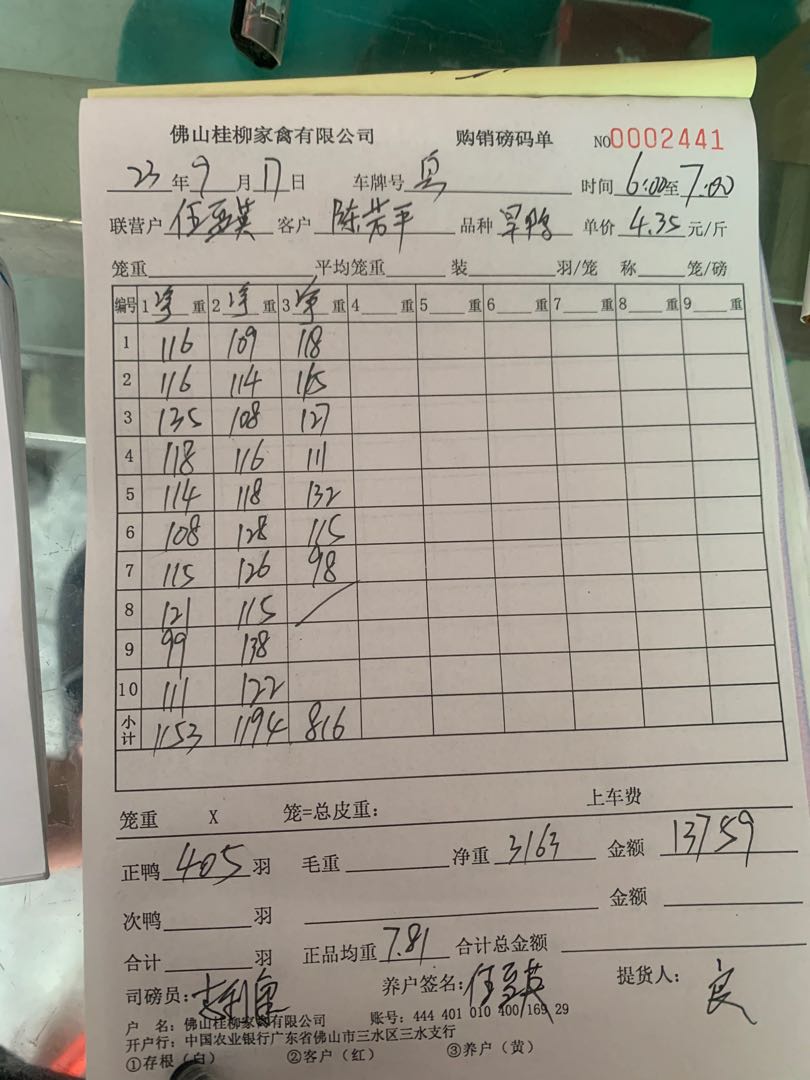 佛山桂柳家禽有限公司 购销磅码单 NO0002441
23年9月17日 车牌号 时间6:00至7:00
联营户 任 英 客户 陈芳平 品种 旱鸭 单价 4.35 元/斤
笼重 平均笼重 装 羽/笼 称 笼/磅
编号 1净重 2净重 3净重 4 重 5 重 6 重 7 重 8 重 9 重
1 116 109 118
2 116 114 115
3 135 108 127
4 118 116 111
5 114 118 132
6 108 128 115
7 115 126 98
8 121 115
9 99 138
10 111 122
小计 1153 1194 816
笼重 X 笼=总皮重: 上车费
正鸭 405 羽 毛重 净重 3163 金额 13759
次鸭 羽 金额
合计 羽 正品均重 7.81 合计总金额
司磅员: 养户签名: 任 英 提货人: 良
户 名: 佛山桂柳家禽有限公司 账号: 444 401 010 400 169 29
开户行: 中国农业银行广东省佛山市三水区三水支行
①存根(白) ②客户(红) ③养户(黄)